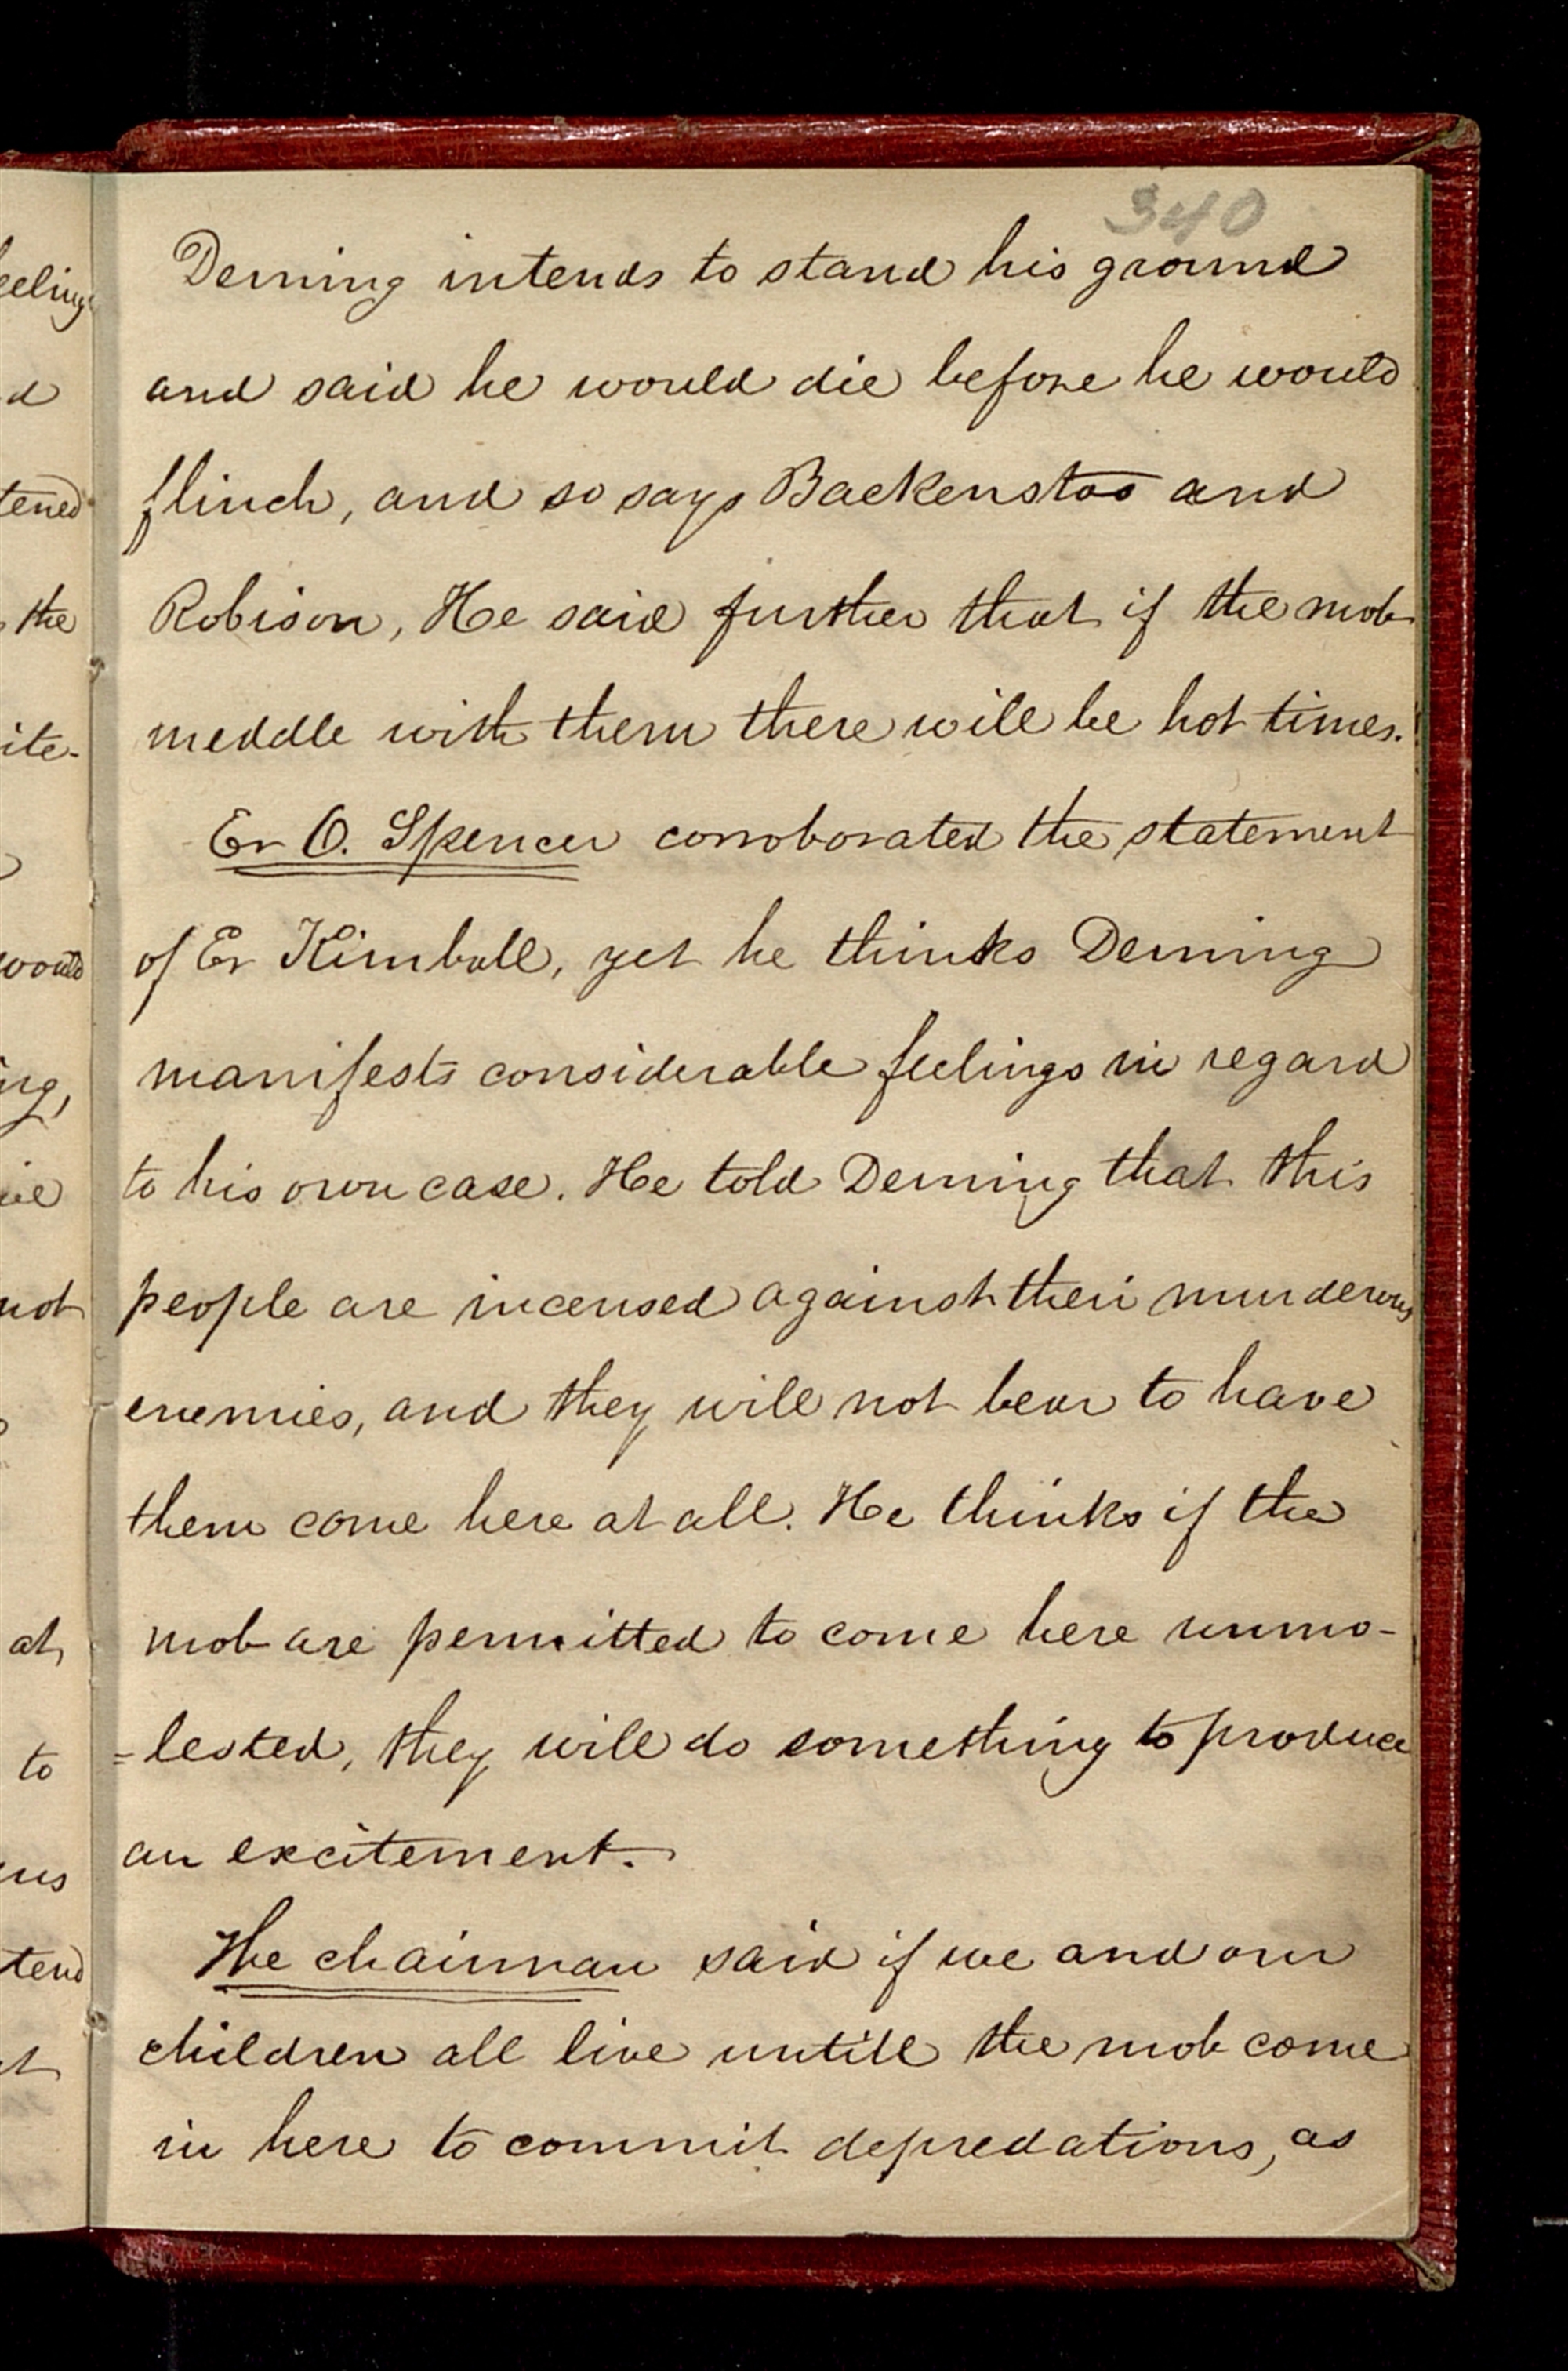 340
Deming intends to stand his ground
and said he would die before he would
flinch, and so says Backenstos and
Robison, He said further that if the mob
meddle with them there will be hot times.
Er O. Spencer corroborated the statement
of Er Kimball, yet he thinks Deming
manifests considerable feelings in regard
to his own case. He told Deming that this
people are incensed against their murderous
enemies, and they will not bear to have
them come here at all. He thinks if the
mob are permitted to come here unmo-
=lested, they will do something to produce
an excitement.
The chairman said if we and our
children all live untill the mob come
in here to commit depredations, as